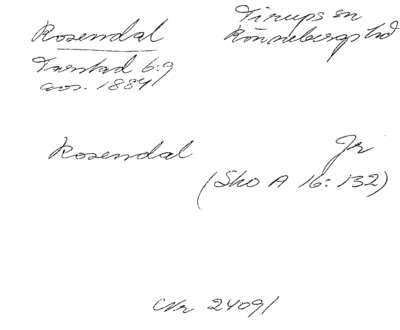 Rosendal
Tirups sn
Rönnebergs hd
Tarstad 6:9
avs. 1884
Rosendal Jr
(Sko A 16:132)
Nr 24091